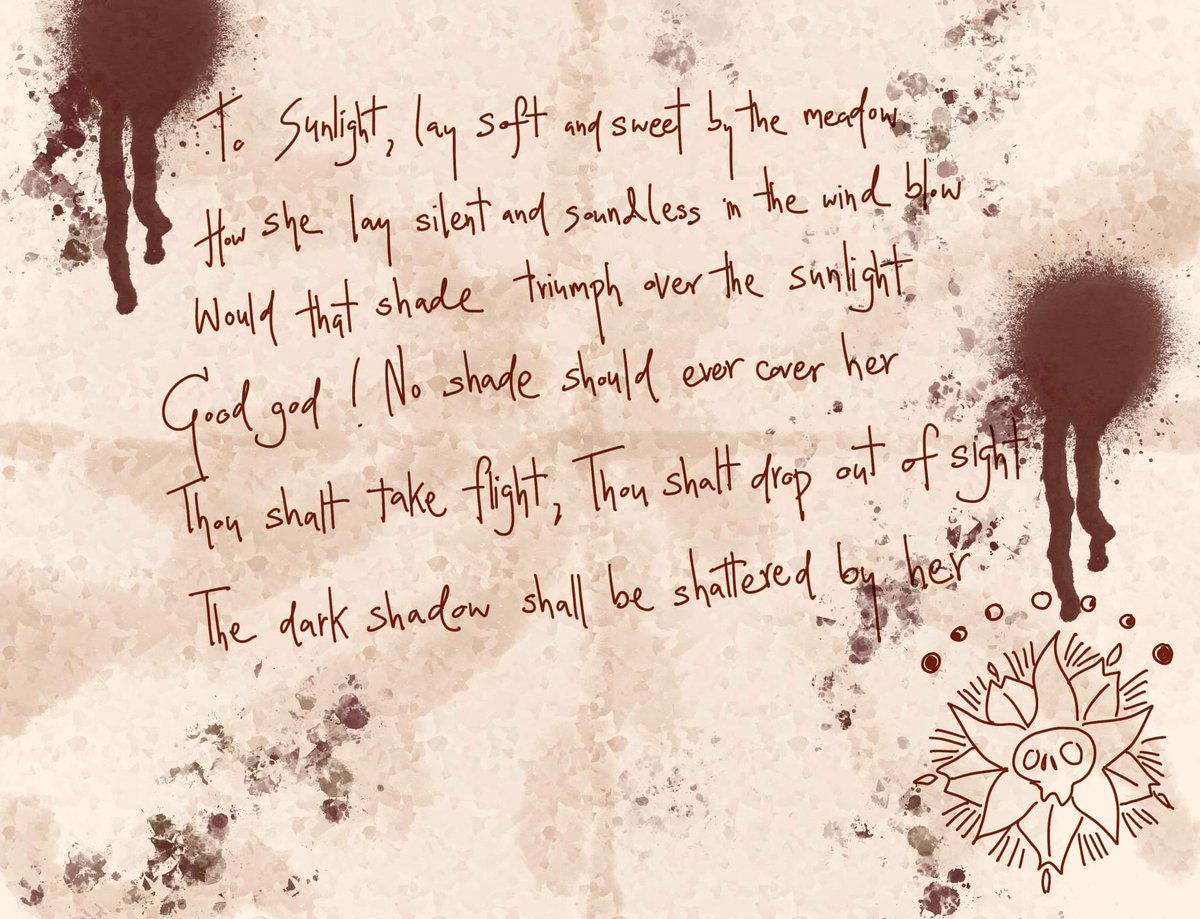 To Sunlight, lay soft and sweet by the meadow
How she lay silent and soundless in the wind blow
Would that shade triumph over the sunlight
Good god! No shade should ever cover her
Thou shalt take flight, Thou shalt drop out of sight
The dark shadow shall be shattered by her